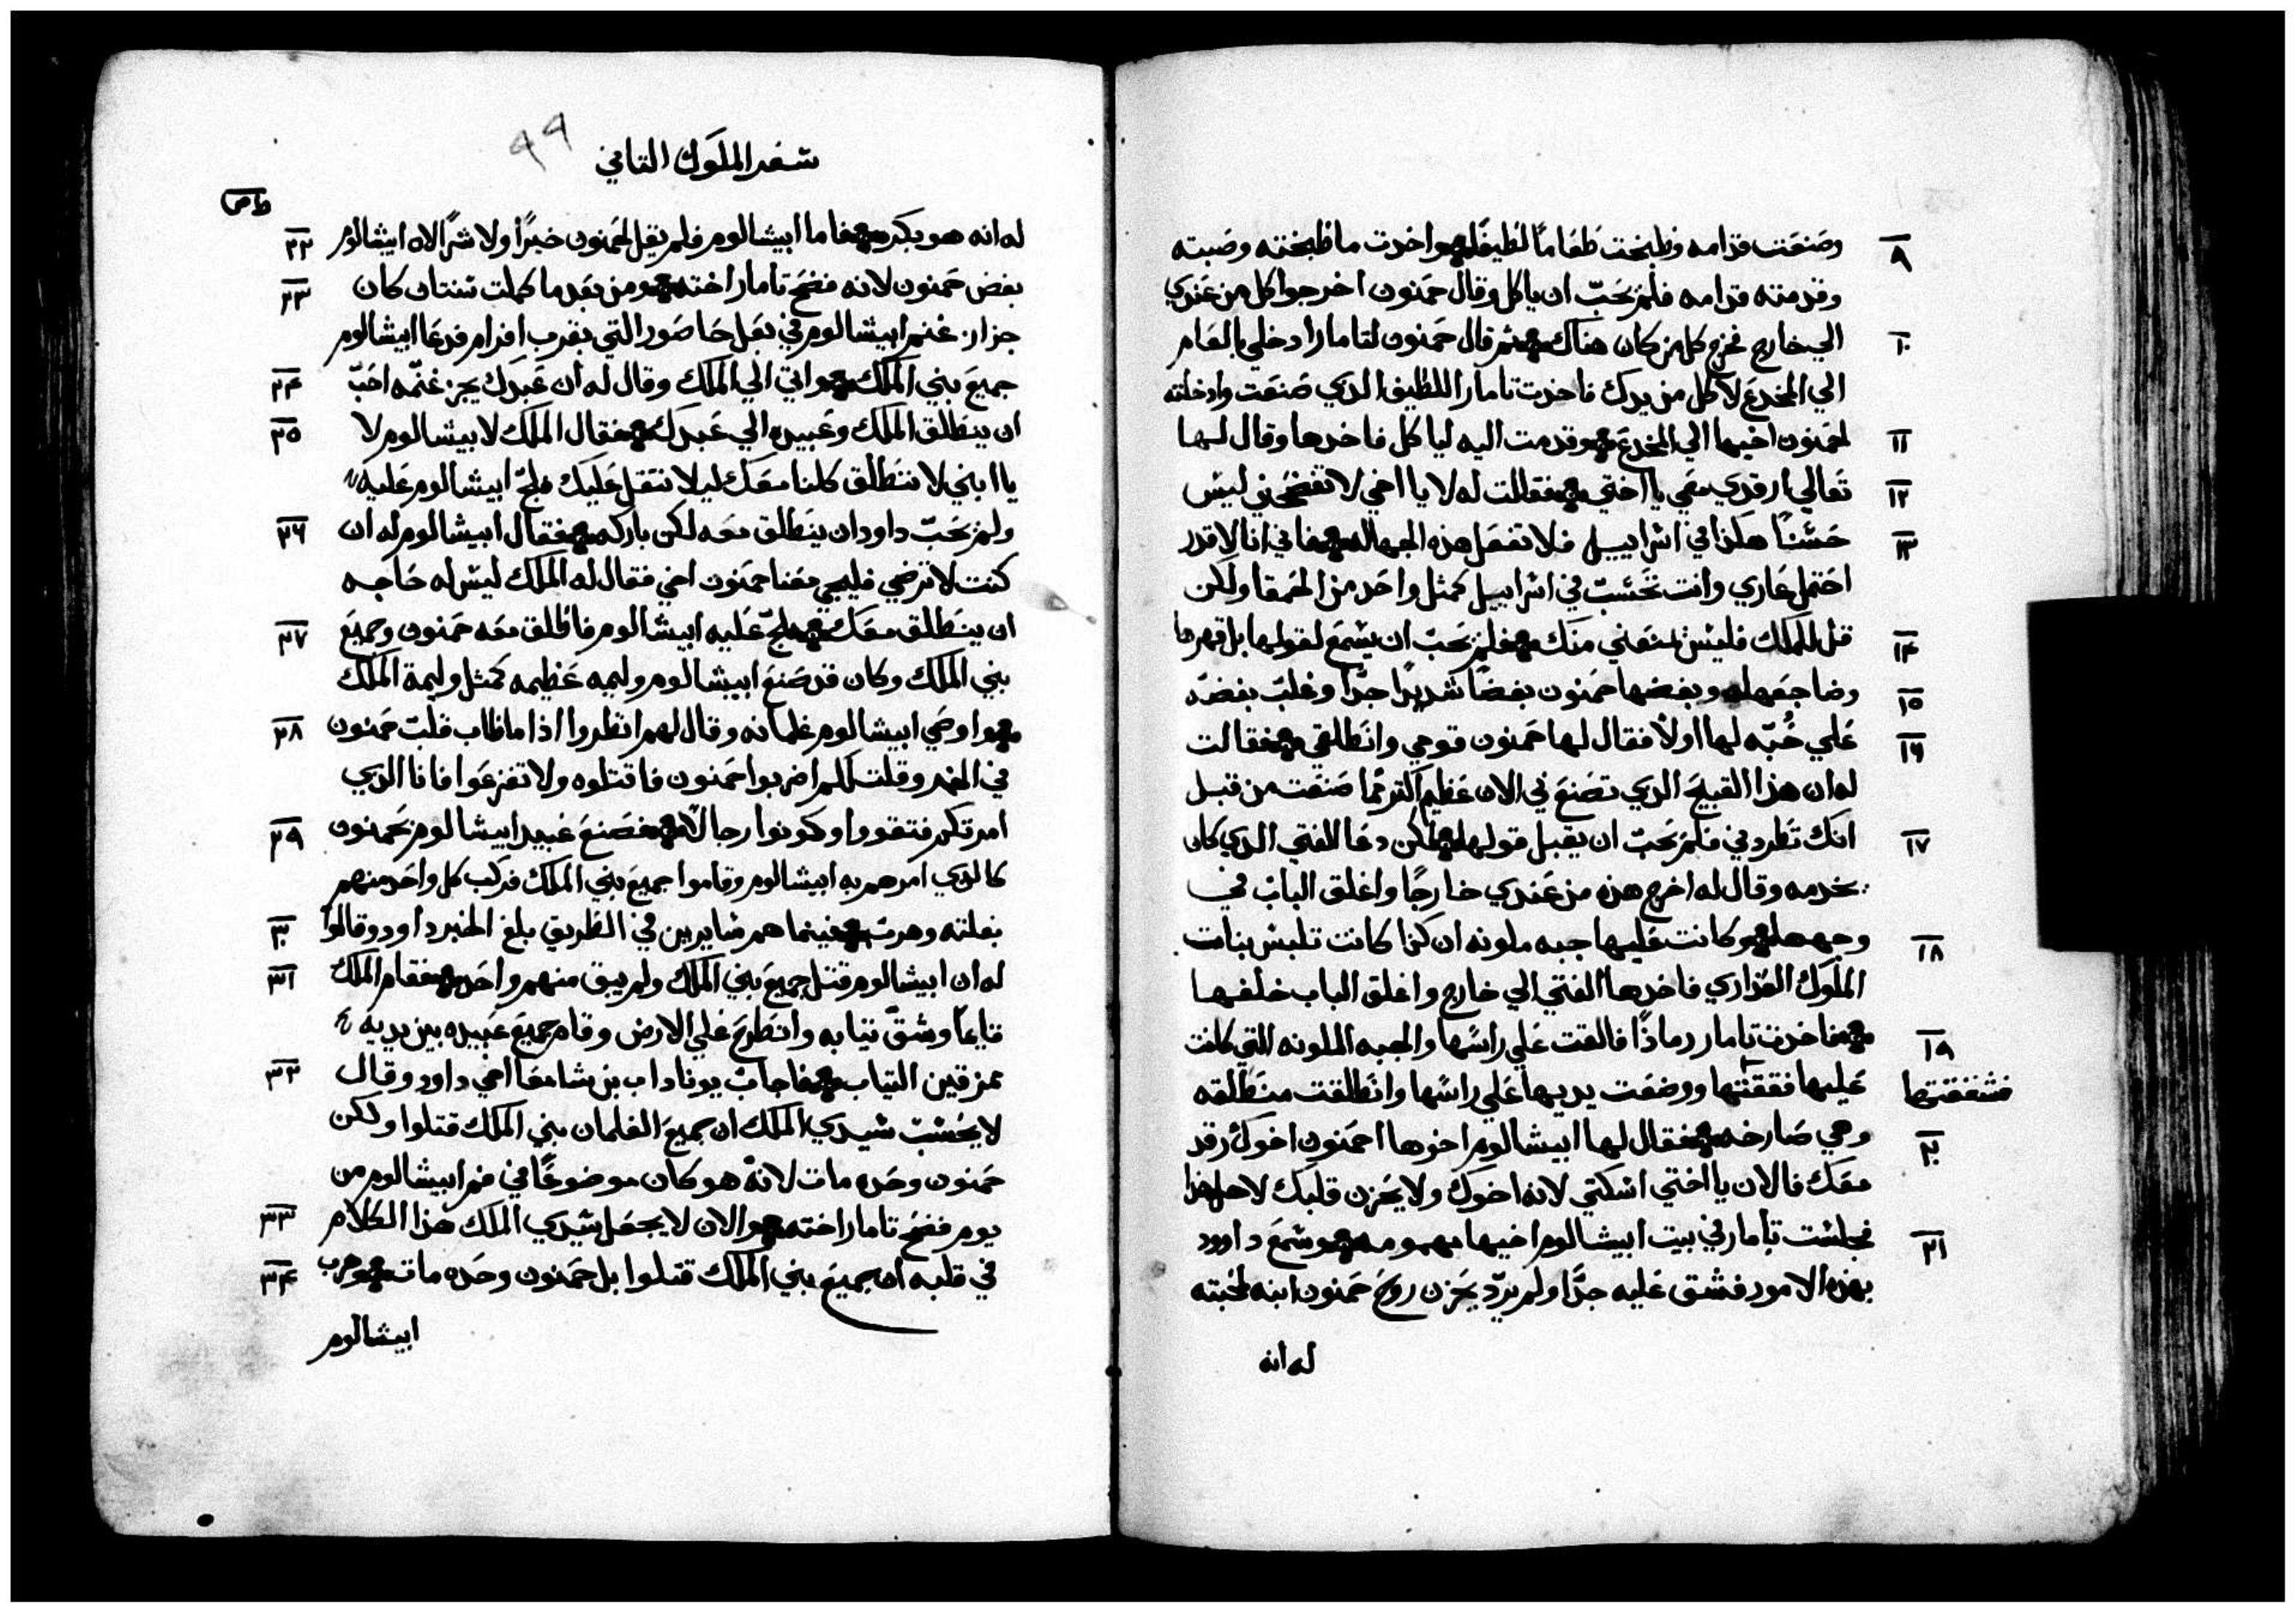 ٨ وصنعت قدامه وطبخت طعاماً لطيفاً واخدت ما طبخته وصبته
وقدمته قدامه فلم يحبّ ان ياكل وقال حمنون اخرجوا كل من عندي
١٠ الي خارج فخرج كل من كان هناك ثم قال حمنون لتامار ادخلي بالطعام
الي المخدع لاكل من يدك فاخدت تامار اللطيف الدي صنعت وادخلته
١١ لحمنون اخيها الي المخدع وقدمت اليه لياكل فاخدها وقال لها
١٢ تعالي ارقدي معي يا اختي فقالت له لا يا اخي لا تفضحني ليس
١٣ حسناً هكذا في اسراييل فلا تفعل هذه الجهاله فاني انا لا اقدر
احتمل عاري وانت تحسب في اسراييل كمثل واحد من الحمقا ولكن
١٤ قل للملك فليس يمنعني منك فلم يحبّ ان يسمع لقولها بل قهرها
١٥ وضاجعها وبغضها حمنون بغضاً شديداً جداً وغلب بغضه
١٦ علي حُبّه لها اولاً فقال لها حمنون قومي وانطلقي فقالت
له ان هذا القبيح الدي تصنع بي الان عظيم اكتر مما صنعت من قبل
١٧ انك تطردني فلم يحبّ ان يقبل قولها لكن دعا الفتي الدي كان
يخدمه وقال له اخرج هذه من عندي خارجاً واغلق الباب في
١٨ وجهها وكانت عليها جبه ملونه ان كدا كانت تلبس بنات
الملوك العداري فاخدها الفتي الي خارج واغلق الباب خلفها
١٩ فاخدت تامار رماداً فالقت علي راسها والجبه الملونه التي كانت
فشققتها عليها فققتها ووضعت يديها علي راسها وانطلقت منطلقه
٢٠ وهي صارخه فقال لها ابيشالوم اخوها احمنون اخوك رقد
معك فالان يا اختي اسكتي لانه اخوك ولا يحزن قلبك لاجل هذا
٢١ فجلست تامار في بيت ابيشالوم اخيها مهمومه وسمع داوود
بهذه الامور فشق عليه جداً ولم يردّ يحزن روح حمنون ابنه لمحبته
له انه
سفر الملوك التاني
٩٩
له انه هو بكره فاما ابيشالوم فلم يقل لحمنون خيراً ولا شراً لان ابيشالوم ٢٢
بغض حمنون لانه فضح تامار اخته ومن بعد ما كملت سنتان كان ٢٣
جزاز غنم ابيشالوم في بعل حاصور التي بقرب افرام فدعا ابيشالوم
جميع بني الملك واتي الي الملك وقال له ان عبدك يجز غنمه احبّ ٢٤
ان ينطلق الملك وعبيده الي عبدك فقال الملك لابيشالوم لا ٢٥
يا ابني لا ننطلق كلنا معك ليلا نتقل عليك فلجّ ابيشالوم عليه
ولم يحبّ داود ان ينطلق معه لكن باركه فقال ابيشالوم له ان ٢٦
كنت لا ترضي فليجي معنا حمنون اخي فقال له الملك ليس له حاجه
ان ينطلق معك فلجّ عليه ابيشالوم فاطلق معه حمنون وجميع ٢٧
بني الملك وكان قد صنع ابيشالوم وليمه عظيمه كمثل وليمة الملك
واوصي ابيشالوم غلمانه وقال لهم انظروا اذا ما طاب قلب حمنون ٢٨
في الخمر وقلت لكم اضربوا حمنون فاقتلوه ولا تفزعوا فانا الدي
امرتكم فتقووا وكونوا رجالاً فصنع عبيد ابيشالوم بحمنون ٢٩
كالدي امرهم به ابيشالوم وقاموا جميع بني الملك فركب كل واحد منهم
بغلته وهرب فبينما هم سايرين في الطريق بلغ الخبر داود وقالوا ٣٠
له ان ابيشالوم قتل جميع بني الملك ولم يبق منهم واحد فقام الملك ٣١
قايماً وشقّ تيابه وانطرح علي الارض وقام جميع عبيده بين يديه
ممزقين التياب فاجاب يوناداب بن شامعا اخي داود وقال ٣٢
لا يحسب سيدي الملك ان جميع الغلمان بني الملك قتلوا ولكن
حمنون وحده مات لانه هو كان موضوعاً في فم ابيشالوم من
يوم فضح تامار اخته والان لا يجعل سيدي الملك هذا الكلام ٣٣
في قلبه ان جميع بني الملك قتلوا بل حمنون وحده مات وهرب ٣٤
ابيشالوم